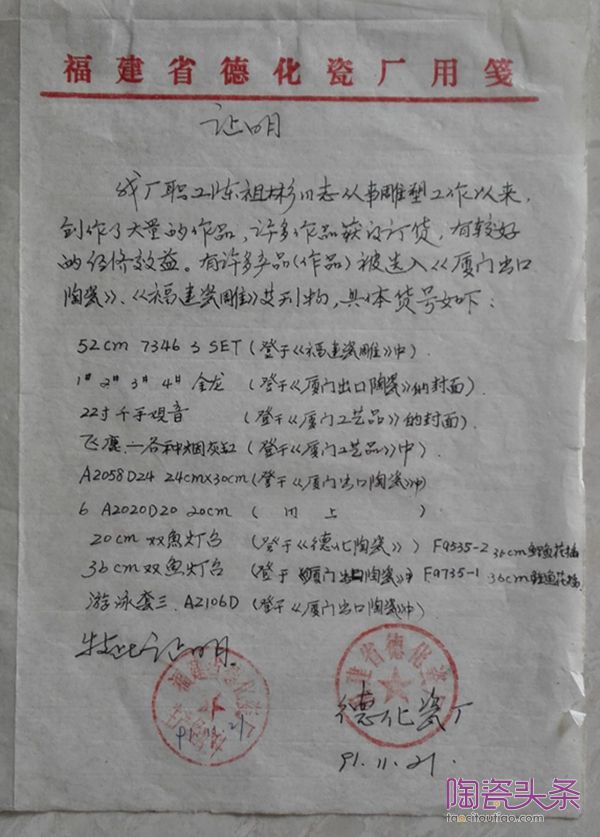 福建省德化瓷厂用笺
证明
我厂职工陈祖彬同志从事雕塑工作以来,
创作了大量的作品,许多作品获得订货,有较好
的经济效益。有许多产品(作品)被选入《厦门出口
陶瓷》、《福建瓷雕》等刊物,具体货号如下:
52cm 7346 3 SET (登于《福建瓷雕》中).
1# 2# 3# 4# 金龙 (登于《厦门出口陶瓷》的封面).
22寸千手观音 (登于《厦门工艺品》的封面).
飞鹿一各种烟灰缸 (登于《厦门工艺品》中).
A2058D24 24cmx30cm (登于《厦门出口陶瓷》中)
6 A2020D20 20cm ( 同上 )
20cm双鱼灯台 (登于《德化陶瓷》) F9535-2 30cm鲤鱼花插
36cm双鱼灯台 (登于《厦门出口陶瓷》) F9735-1 36cm鲤鱼花插
游泳套三. A2106D (登于《厦门出口陶瓷》中).
特此证明.
福建省德化瓷厂
建省德化瓷
德化瓷厂
91.11.21.
陶瓷头条
taocitoutiao.com